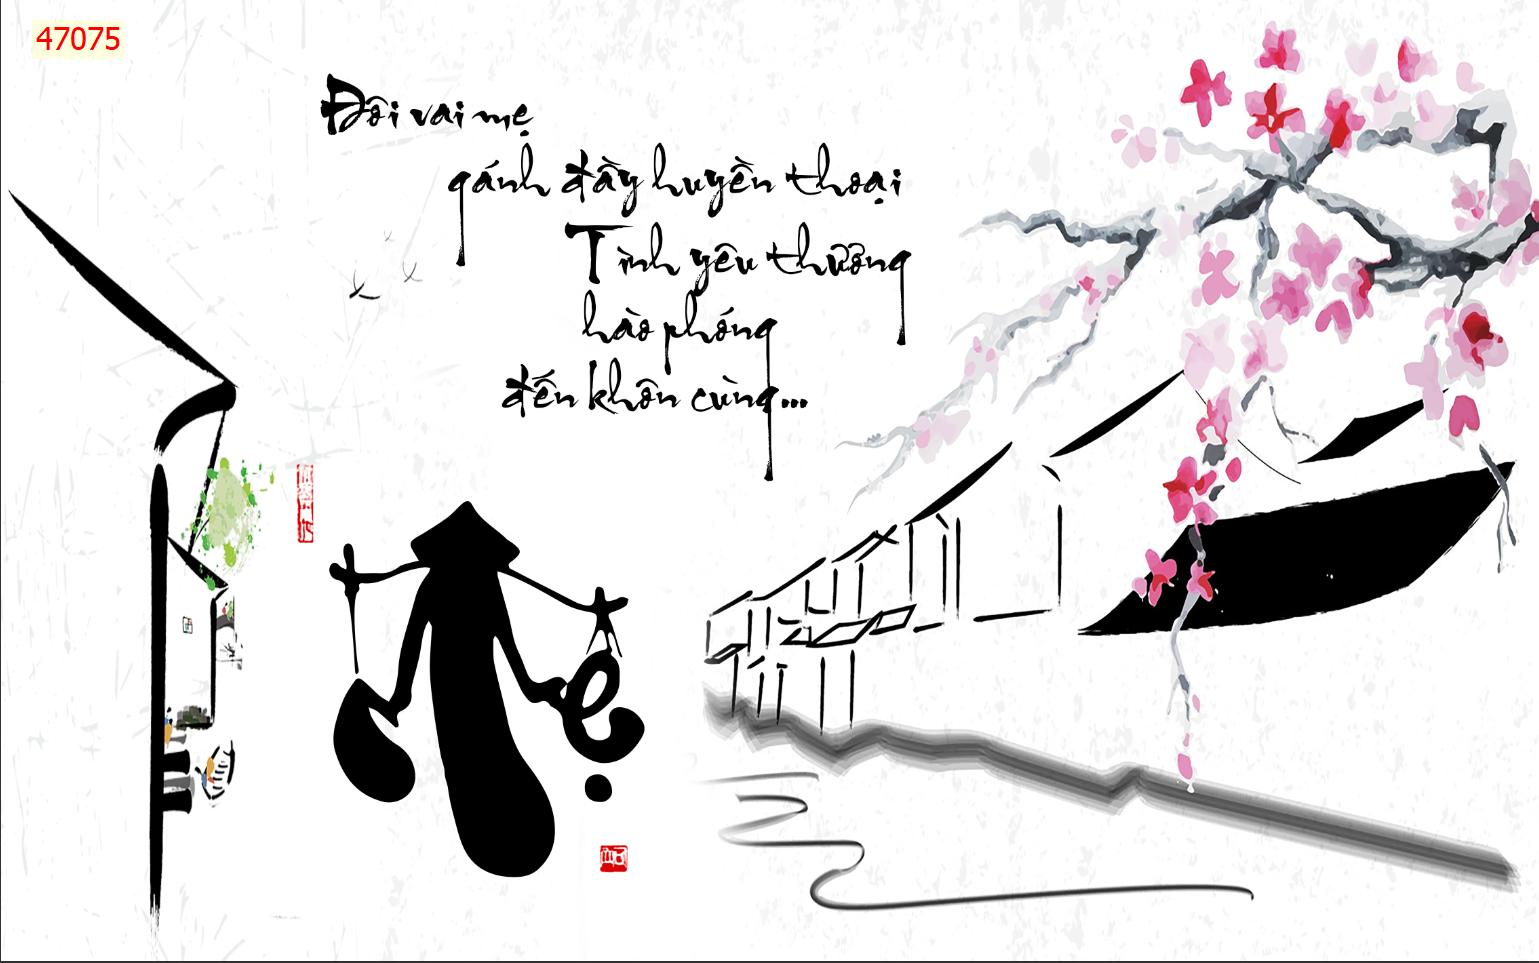 47075
Đôi vai mẹ
gánh đầy huyền thoại
Tình yêu thương
hào phóng
đến khôn cùng...
Mẹ